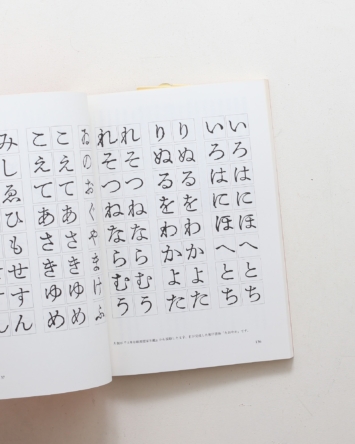 いろはにほへとち
いろはにほへとち
りぬるをわかよた
りぬるをわかよた
れそつねならむう
れそつねならむう
ゐのおくやまけふ
こえてあさきゆめ
こえてあさきゆめ
みしゑひもせすん